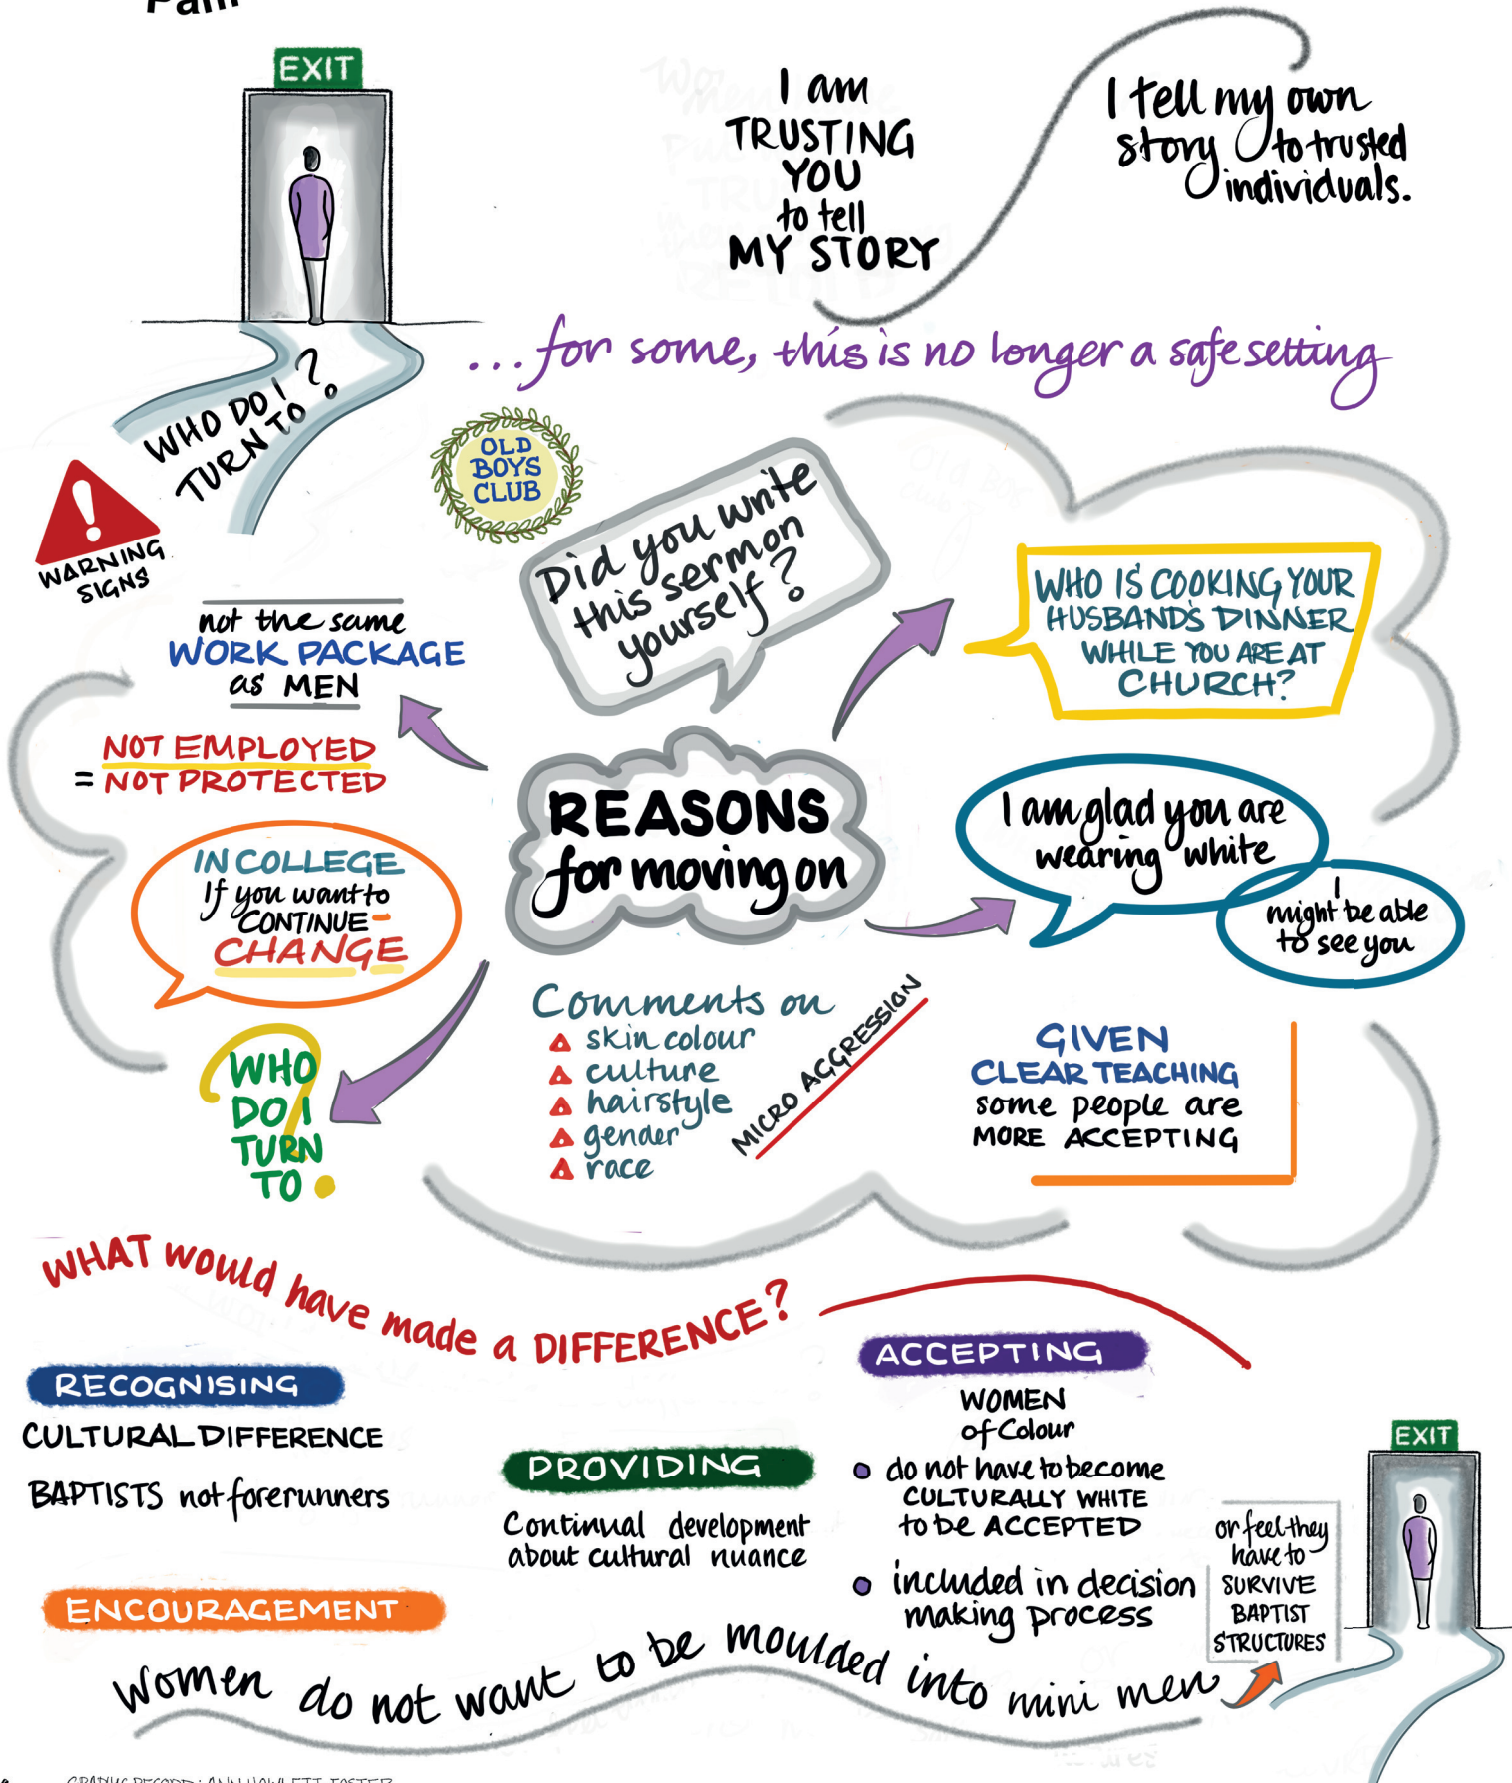 EXIT
I am
TRUSTING
YOU
to tell
MY STORY
I tell my own
story to trusted
individuals.
...for some, this is no longer a safe setting
WHO DO I
TURN TO?
WARNING
SIGNS
OLD
BOYS
CLUB
Did you write
this sermon
yourself?
WHO IS COOKING YOUR
HUSBANDS DINNER
WHILE YOU ARE AT
CHURCH?
not the same
WORK PACKAGE
as MEN
NOT EMPLOYED
= NOT PROTECTED
REASONS
for moving on
I am glad you are
wearing white
I
might be able
to see you
IN COLLEGE
If you want to
CONTINUE -
CHANGE
WHO
DO I
TURN
TO?
Comments on
skin colour
culture
hairstyle
gender
race
MICRO AGGRESSION
GIVEN
CLEAR TEACHING
some people are
MORE ACCEPTING
WHAT WOULD have made a DIFFERENCE?
RECOGNISING
CULTURAL DIFFERENCE
BAPTISTS not forerunners
PROVIDING
Continual development
about cultural nuance
ACCEPTING
WOMEN
of Colour
do not have to become
CULTURALLY WHITE
to be ACCEPTED
included in decision
making process
ENCOURAGEMENT
Women do not want to be moulded into mini men
or feel they
have to
SURVIVE
BAPTIST
STRUCTURES
EXIT